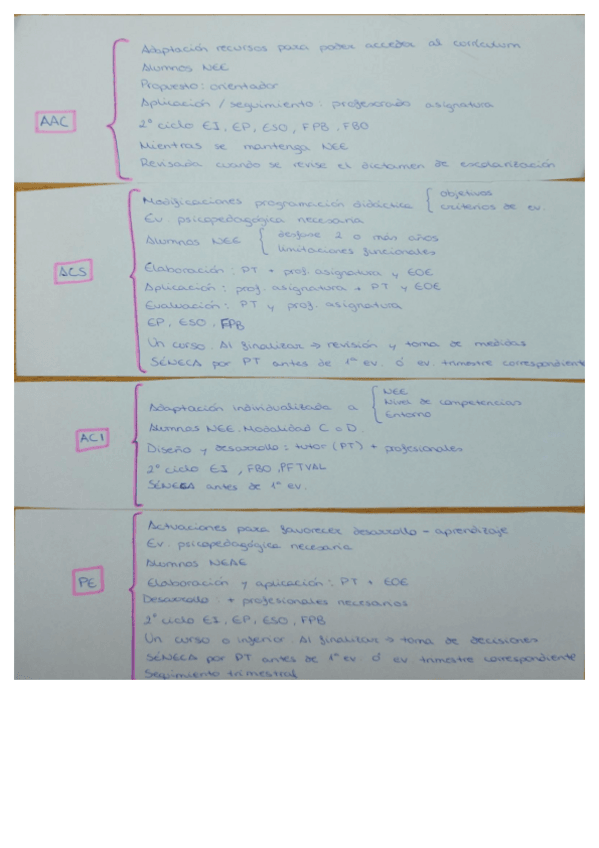 AAC
Adaptación recursos para poder acceder al currículum
Alumnos NEE
Propuesto: orientador
Aplicación / seguimiento: profesorado asignatura
2º ciclo EI, EP, ESO, FPB, FBO
Mientras se mantenga NEE
Revisada cuando se revise el dictamen de escolarización
ACS
Modificaciones programación didáctica { objetivos
criterios de ev.
Ev. psicopedagógica necesaria
Alumnos NEE { desfase 2 o más años
limitaciones funcionales
Elaboración: PT + prof. asignatura y EOE
Aplicación: prof. asignatura + PT y EOE
Evaluación: PT y prof. asignatura
EP, ESO, FPB
Un curso. Al finalizar → revisión y toma de medidas
SÉNECA por PT antes de 1ª ev. ó ev. trimestre correspondiente
ACI
Adaptación individualizada a { NEE
Nivel de competencias
Entorno
Alumnos NEE. Modalidad C o D.
Diseño y desarrollo: tutor (PT) + profesionales
2º ciclo EI, FBO, PFTVAL
SÉNECA antes de 1ª ev.
PE
Actuaciones para favorecer desarrollo - aprendizaje
Ev. psicopedagógica necesaria
Alumnos NEAE
Elaboración y aplicación: PT + EOE
Desarrollo: + profesionales necesarios
2º ciclo EI, EP, ESO, FPB
Un curso o inferior. Al finalizar → toma de decisiones
SÉNECA por PT antes de 1ª ev. ó ev. trimestre correspondiente
Seguimiento trimestral